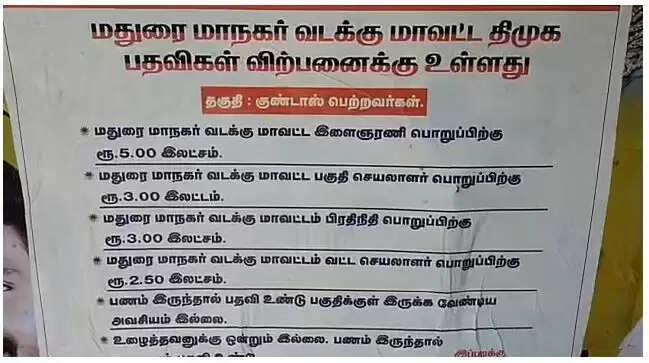 மதுரை மாநகர் வடக்கு மாவட்ட திமுக
பதவிகள் விற்பனைக்கு உள்ளது
தகுதி : குண்டாஸ் பெற்றவர்கள்.
* மதுரை மாநகர் வடக்கு மாவட்ட இளைஞரணி பொறுப்பிற்கு
ரூ.5.00 இலட்சம்.
* மதுரை மாநகர் வடக்கு மாவட்ட பகுதி செயலாளர் பொறுப்பிற்கு
ரூ.3.00 இலட்டம்.
* மதுரை மாநகர் வடக்கு மாவட்டம் பிரதிநிதி பொறுப்பிற்கு
ரூ.3.00 இலட்சம்.
* மதுரை மாநகர் வடக்கு மாவட்டம் வட்ட செயலாளர் பொறுப்பிற்கு
ரூ.2.50 இலட்சம்.
* பணம் இருந்தால் பதவி உண்டு பகுதிக்குள் இருக்க வேண்டிய
அவசியம் இல்லை.
* உழைத்தவனுக்கு ஒன்றும் இல்லை. பணம் இருந்தால்